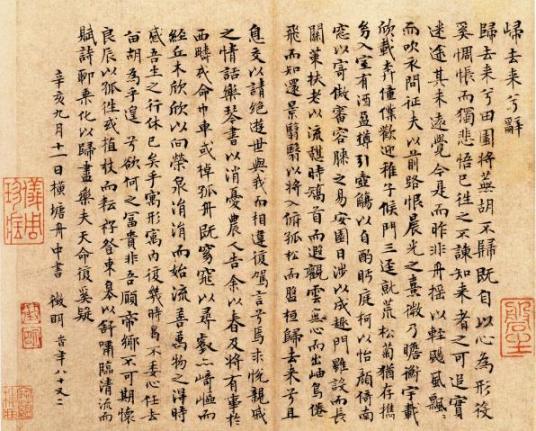 歸去来兮辭
歸去来兮田園將蕪胡不歸既自以心為形役
奚惆悵而獨悲悟已往之不諫知来者之可追實
迷途其未遠覺今是而昨非舟摇摇以輕颺風飄飄
而吹衣問征夫以前路恨晨光之熹微乃瞻衡宇載
欣載奔僮僕歡迎稚子候門三逕就荒松菊猶存携
幼入室有酒盈樽引壺觴以自酌眄庭柯以怡顔倚南
窓以寄傲審容膝之易安園日涉以成趣門雖設而長
關策扶老以流憩時矯首而遐觀雲無心而出岫鳥倦
飛而知還景翳翳以將入撫孤松而盤桓歸去来兮且
息交以請絶遊世與我而相違復駕言兮焉求悦親戚
之情話樂琴書以消憂農人告余以春及將有事於
西疇或命巾車或棹孤舟既窈窕以尋壑亦崎嶇而
經丘木欣欣以向榮泉涓涓而始流善萬物之得時
感吾生之行休已矣乎寓形寓内復幾時曷不委心任去
留胡為乎遑遑兮欲何之富貴非吾願帝鄉不可期懷
良辰以孤往或植杖而耘耔登東皋以舒嘯臨清流而
賦詩聊乘化以歸盡樂夫天命復奚疑
辛亥九月十一日横塘舟中書 徵明 時年八十又二
儀周珍藏